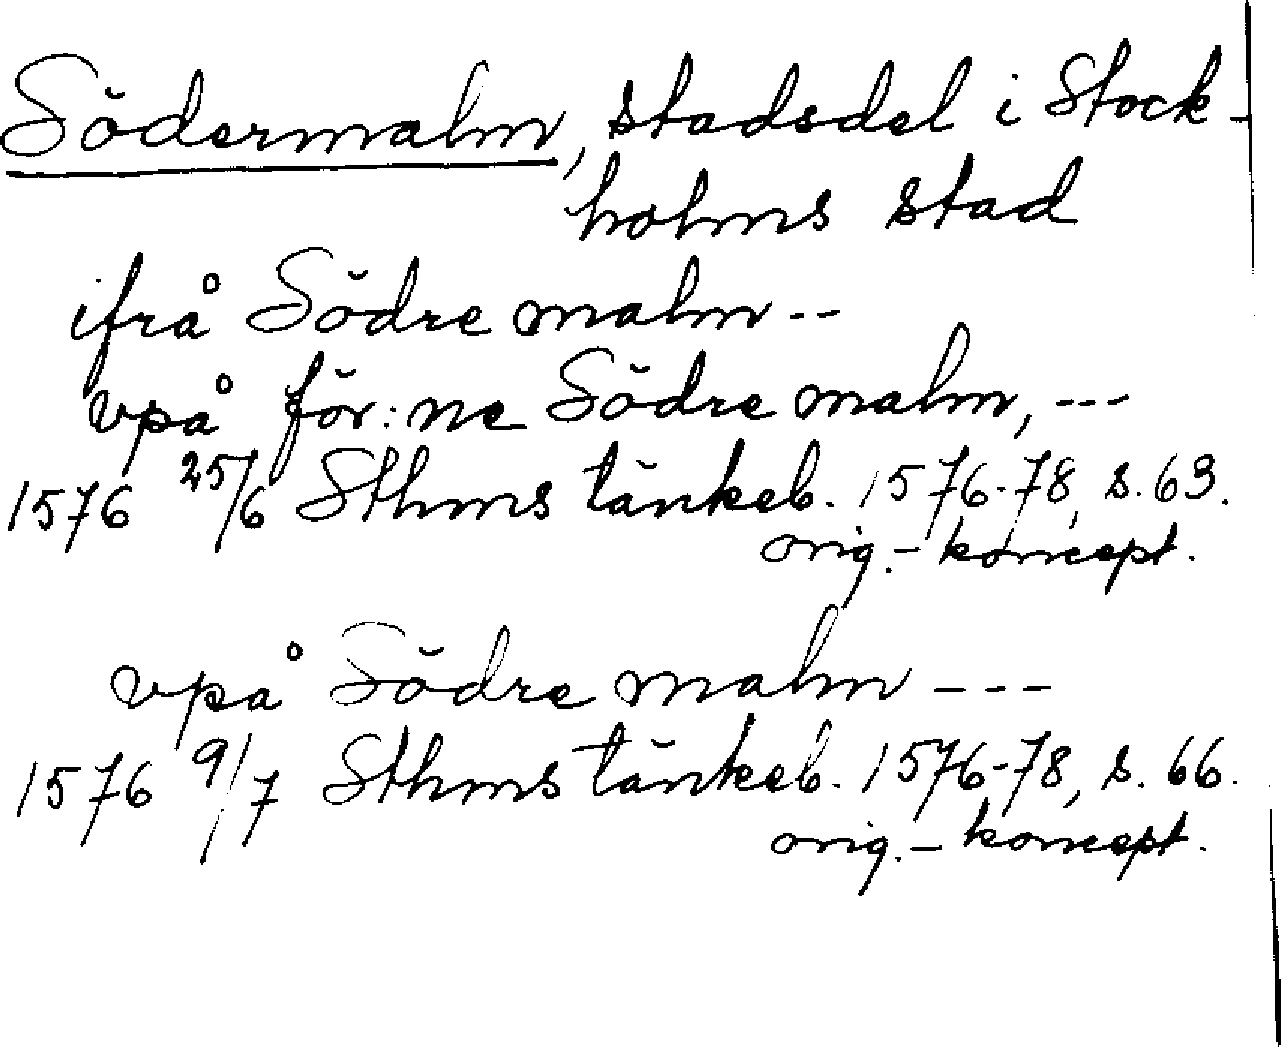 Södermalm, stadsdel i Stock-
holms stad
ifrå Södre malm --
vpå för:ne Södre malm, ---
1576 25/6 Sthms tänkeb. 1576-78, s. 63.
orig.- koncept.
vpå Södre malm ---
1576 9/7 Sthms tänkeb. 1576-78, s. 66.
orig.- koncept.